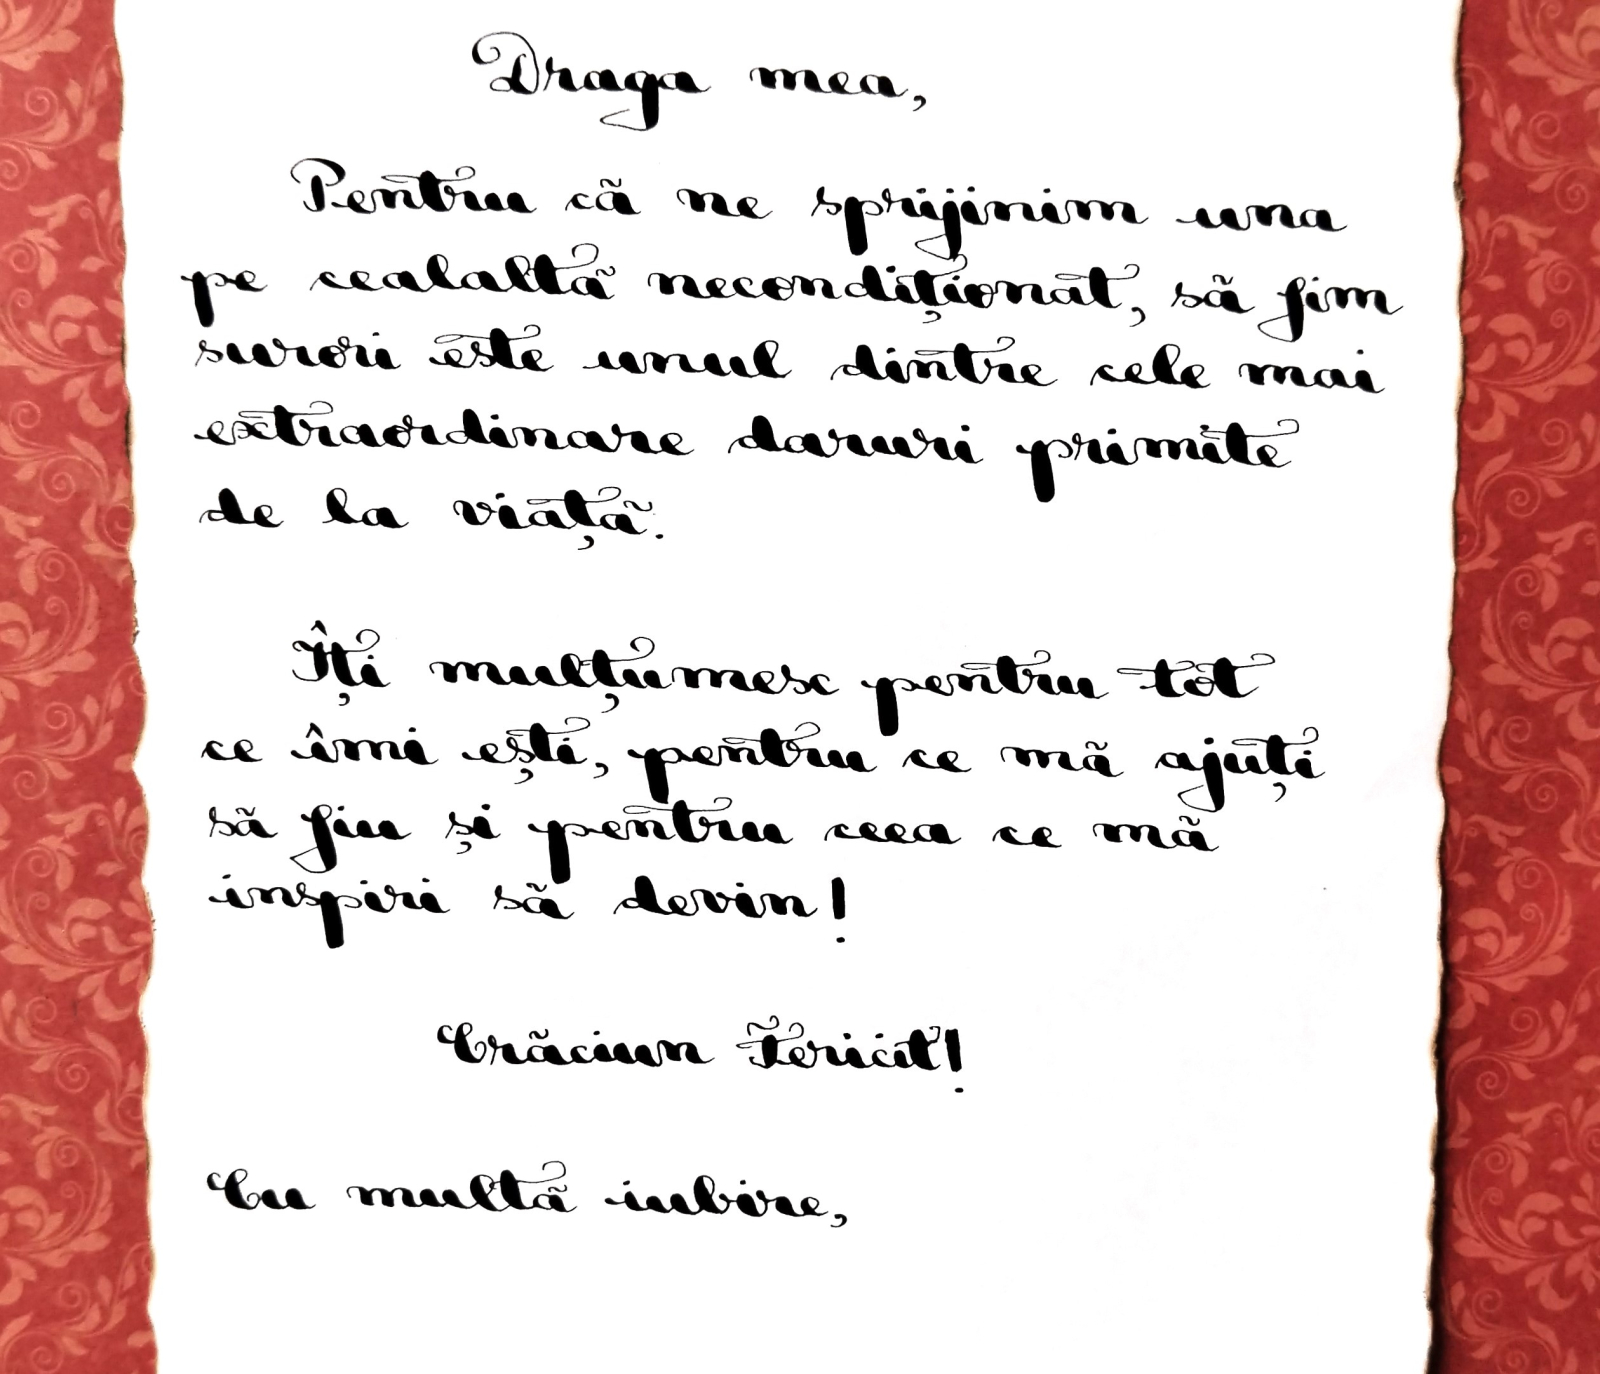 Draga mea,
Pentru că ne sprijinim una
pe cealaltă necondiționat, să fim
surori este unul dintre cele mai
extraordinare daruri primite
de la viață.
Îți mulțumesc pentru tot
ce îmi ești, pentru ce mă ajuți
să fiu și pentru ceea ce mă
inspiri să devin!
Crăciun Fericit!
Cu multă iubire,